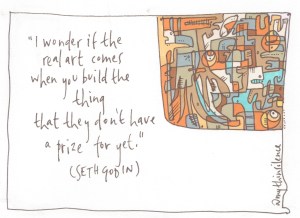 "I wonder if the
real art comes
when you build the
thing
that they don't have
a prize for yet."
(SETH GODIN)